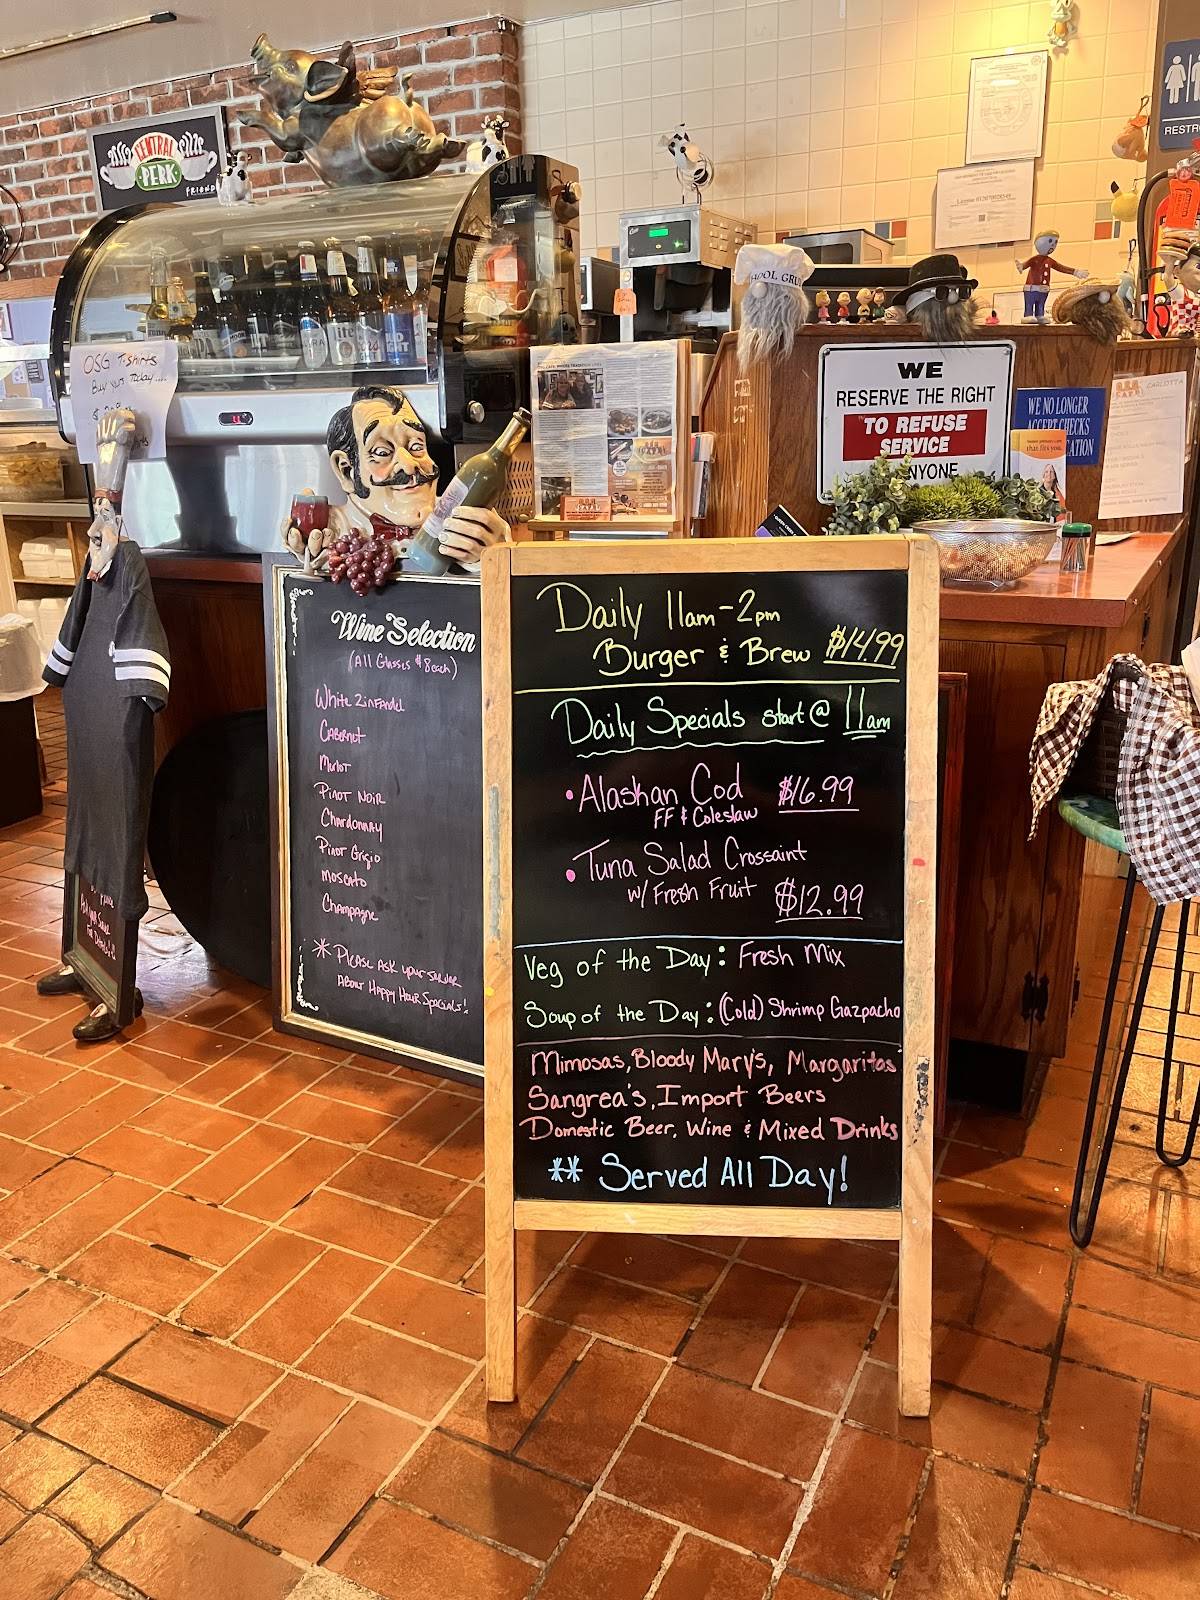 CENTRAL
PERK
FRIENDS
RESTRO
OOL GRU
OSG T-Shirts
Buy yours Today....
WE
RESERVE THE RIGHT
TO REFUSE
SERVICE
NYONE
WE NO LONGER
ACCEPT CHECKS
CATION
CARLOTTA
that fits you.
Wine Selection
(All Glasses $8 each)
White Zinfandel
Cabernet
Merlot
Pinot Noir
Chardonnay
Pinot Grigio
Moscato
Champagne
* Please ask your server
About Happy Hour Specials!
Daily 11am-2pm
Burger & Brew $14.99
Daily Specials start @ 11am
• Alaskan Cod $16.99
FF & Coleslaw
• Tuna Salad Crossaint
w/ Fresh Fruit $12.99
Veg of the Day: Fresh Mix
Soup of the Day: (Cold) Shrimp Gazpacho
Mimosas, Bloody Mary's, Margaritas
Sangrea's, Import Beers
Domestic Beer, Wine & Mixed Drinks
** Served All Day!